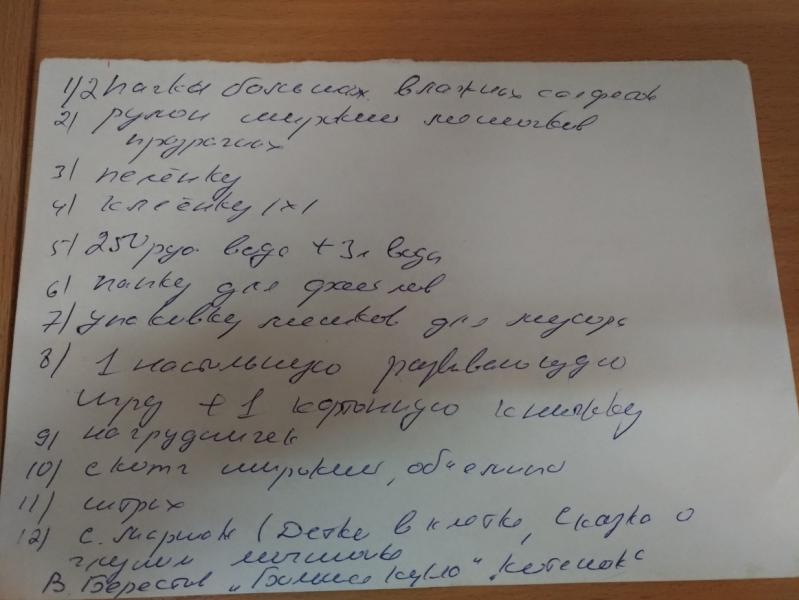 1) 2 пачки больших влажных салфеток
2) рулон широких мешочков
прозрачных
3) пелёнку
4) клеёнку 1×1
5) 250 руб вода + 3л воды
6) папку для файлов
7) упаковку мешков для мусора
8) 1 настольную развивающую
игру + 1 картонную книжку
9) нагрудничек
10) скотч широкий,
11) штрих
12) С. Маршак (Детки в клетке, Сказка о
глупом мышонке
В. Берестов "Больная кукла" "Котенок"